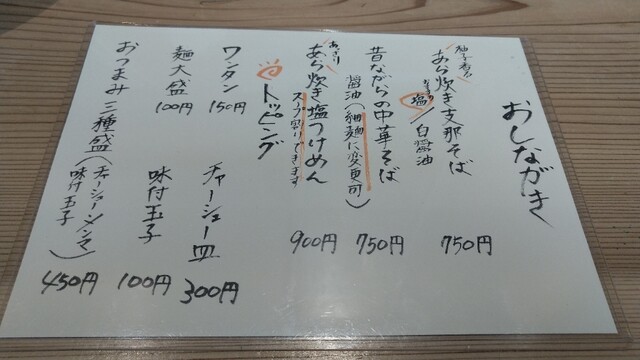 おしながき
柚子香る
あら炊き支那そば 750円
おすすめ
塩/白醤油
昔ながらの中華そば 750円
醤油(細麺に変更可)
あっさり
あら炊き塩つけめん 900円
スープ割りできます
トッピング
ワンタン 150円
チャーシュー皿 300円
麺大盛 100円
味付玉子 100円
おつまみ三種盛(チャーシュー・メンマ 味付玉子) 450円